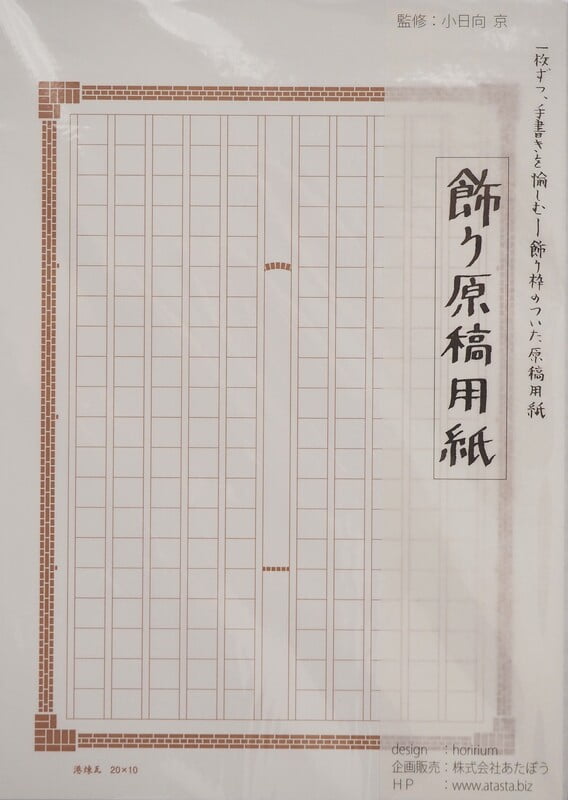 監修：小日向 京
一枚ずつ、手書きを愉しむ―飾り枠のついた原稿用紙
飾り原稿用紙
design ：horirium
企画販売：株式会社あたぼう
HP ：www.atasta.biz
港煉瓦 20×10